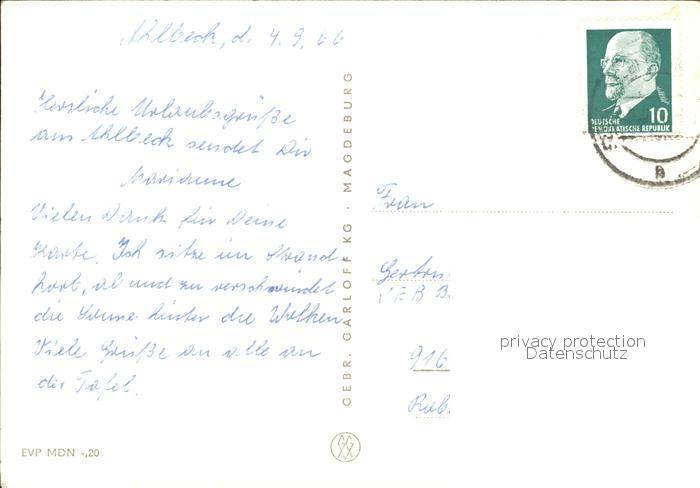 Ahlbeck, d. 4.9.66
Herzliche Urlaubsgrüße
aus Ahlbeck sendet Dir
Marianne
Vielen Dank für Deine
Karte. Ich sitze im Strand
korb, ab und zu verschwindet
die Sonne hinter die Wolken
Viele Grüße an alle an
der Tafel.
EVP MDN -,20
GEBR. GARLOFF KG · MAGDEBURG
10
DEUTSCHE
DEMOKRATISCHE REPUBLIK
Frau
Gertru
VEB B.
916
Rab.
privacy protection
Datenschutz